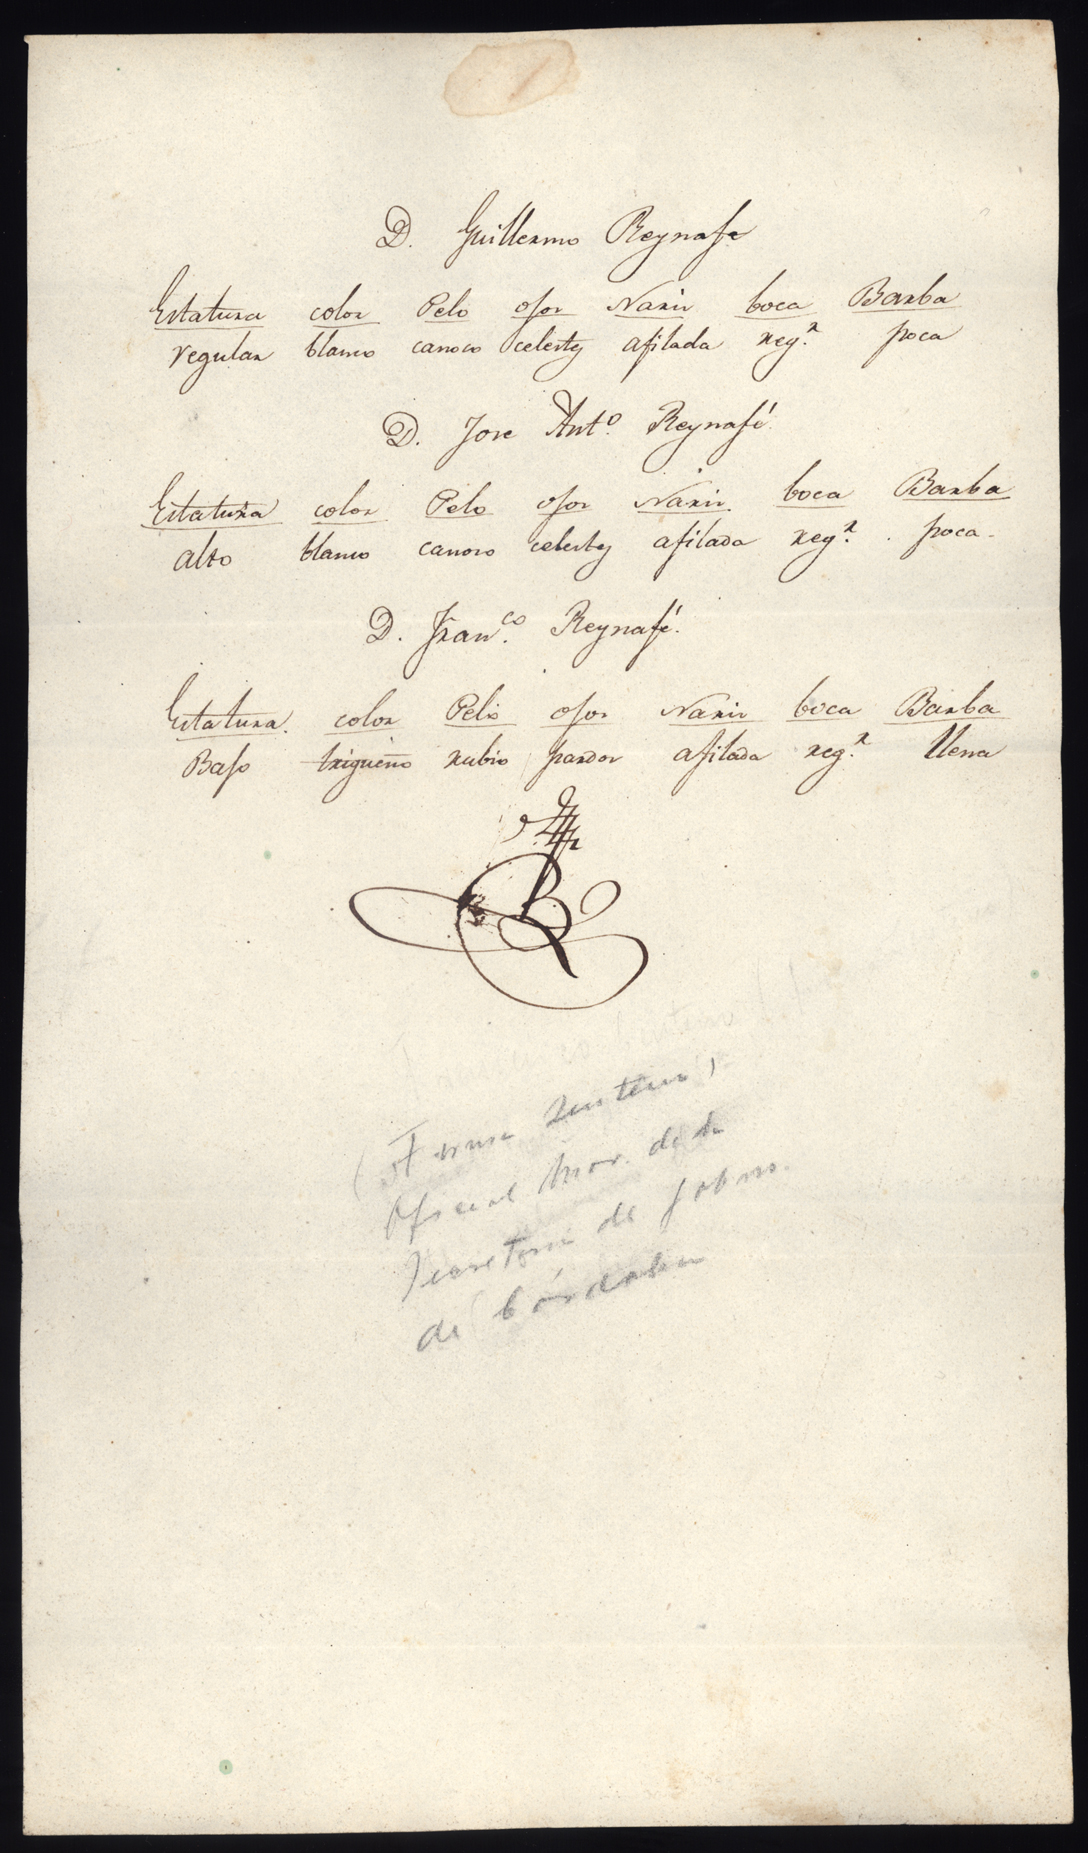 D. Guillermo Reynafe
Estatura color Pelo ojos Nariz boca Barba
regular blanco canoso celestes afilada reg.r poca
D. Jose Ant.o Reynafé
Estatura color Pelo ojos Nariz boca Barba
alto blanco canoso celestes afilada reg.r poca
D. Fran.co Reynafé
Estatura color Pelo ojos Nariz boca Barba
Bajo trigueño rubio pardos afilada reg.r llena
Oficial Mor. de la
Secretaria de Gobno.
de Córdoba